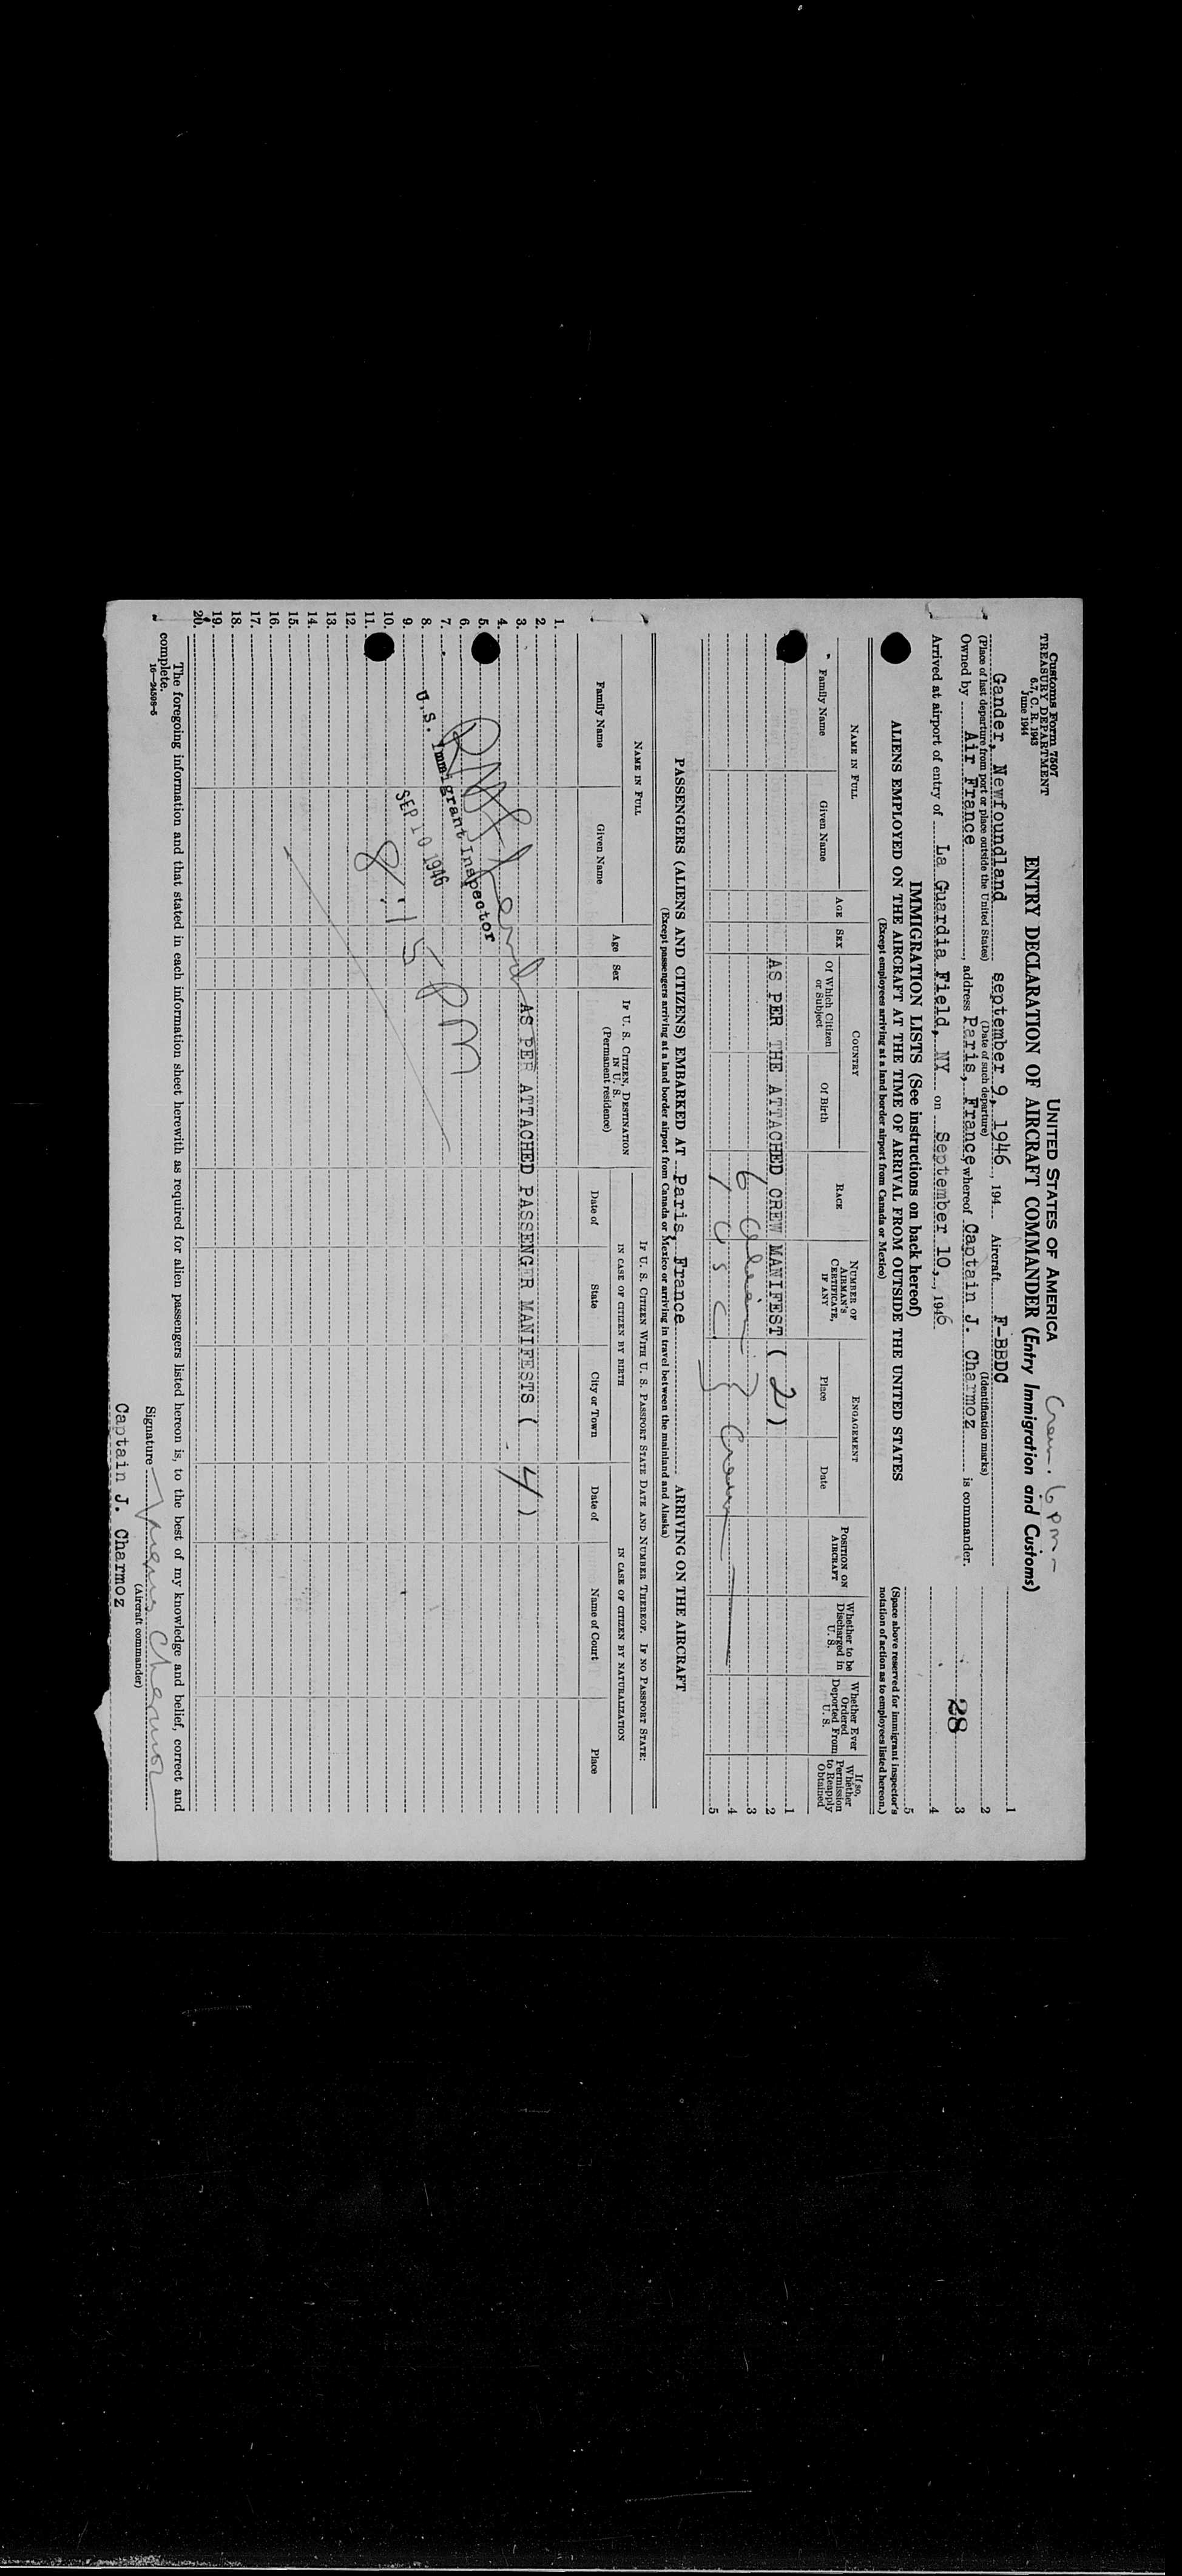 Customs Form 7507
TREASURY DEPARTMENT
6.7, C. R. 1943
June 1944
UNITED STATES OF AMERICA
6 pm
ENTRY DECLARATION OF AIRCRAFT COMMANDER (Entry Immigration and Customs)
Gander, Newfoundland september 9, 1946, 194 Aircraft F-BBDC 1
(Place of last departure from port or place outside the United States) (Date of such departure) (Identification marks) 2
Owned by Air France, address Paris, France whereof Captain J. Charmoz is commander. 28 3
Arrived at airport of entry of La Guardia Field, NY on September 10,, 1946 4
IMMIGRATION LISTS (See instructions on back hereof) 5
ALIENS EMPLOYED ON THE AIRCRAFT AT THE TIME OF ARRIVAL FROM OUTSIDE THE UNITED STATES
(Space above reserved for immigrant inspector's notation of action as to employees listed hereon.)
(Except employees arriving at a land border airport from Canada or Mexico)
NAME IN FULL
Family Name
Given Name
AGE
SEX
COUNTRY
Of Which Citizen or Subject
Of Birth
RACE
NUMBER OF AIRMAN'S CERTIFICATE, IF ANY
ENGAGEMENT
Place
Date
POSITION ON AIRCRAFT
Whether to be Discharged in U. S.
Whether Ever Ordered Deported From U. S.
If so, Whether Permission to Reapply Obtained
1
AS PER THE ATTACHED CREW MANIFEST ( 2 ) 2
6 3
USC Crew 4
5
PASSENGERS (ALIENS AND CITIZENS) EMBARKED AT Paris, France ARRIVING ON THE AIRCRAFT
(Except passengers arriving at a land border airport from Canada or Mexico or arriving in travel between the mainland and Alaska)
NAME IN FULL
Family Name
Given Name
Age
Sex
IF U. S. CITIZEN, DESTINATION IN U. S. (Permanent residence)
IF U. S. CITIZEN WITH U. S. PASSPORT STATE DATE AND NUMBER THEREOF. IF NO PASSPORT STATE:
IN CASE OF CITIZEN BY BIRTH
IN CASE OF CITIZEN BY NATURALIZATION
Date of
State
City or Town
Date of
Name of Court
Place
1.
2.
3. AS PER ATTACHED PASSENGER MANIFESTS ( 4 )
4.
5.
6.
7.
8. U.S. Immigrant Inspector
9. SEP 10 1946
10. 8:15 PM
11.
12.
13.
14.
15.
16.
17.
18.
19.
20.
The foregoing information and that stated in each information sheet herewith as required for alien passengers listed hereon is, to the best of my knowledge and belief, correct and
complete.
16—24509-5
Signature Charmoz
(Aircraft commander)
Captain J. Charmoz